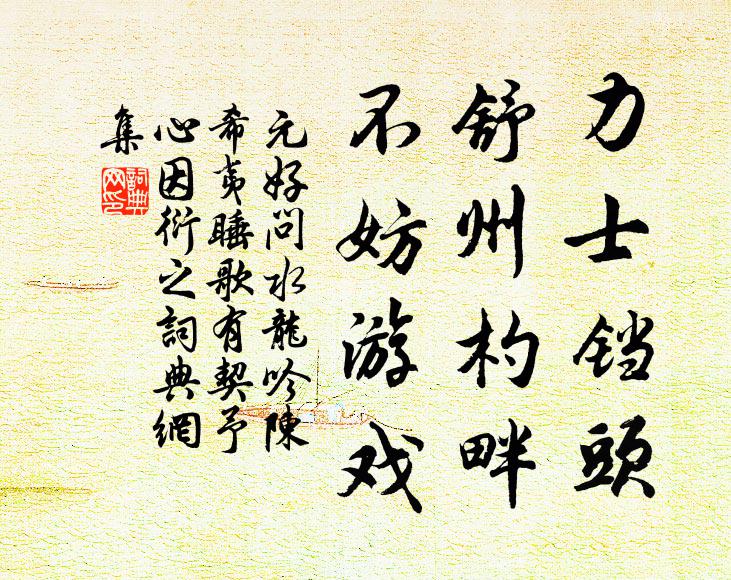 力士铛頭
舒州杓畔
不妨游戏
元好问水龍吟陳
希夷睡歌有契予
心因衍之詞典網
集
詞典网印